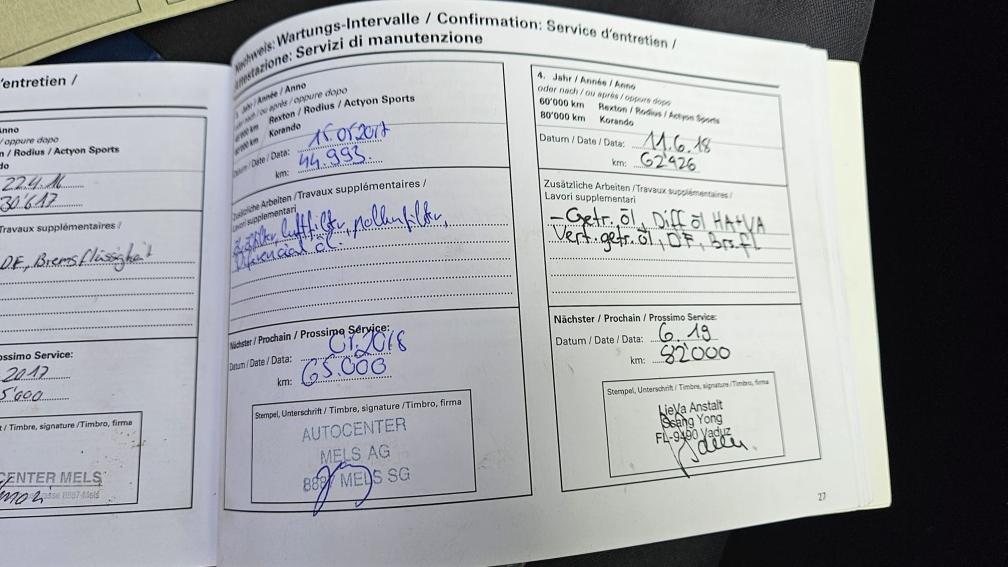 Nachweis: Wartungs-Intervalle / Confirmation: Service d'entretien /
Attestazione: Servizi di manutenzione
'entretien /
Anno
/ oppure dopo
n / Rodius / Actyon Sports
do
22.4.16
30'617
Travaux supplémentaires /
D.F., Bremsflüssigkeit
ossimo Service:
2017
5'000
t / Timbre, signature /Timbro, firma
CENTER MELS
8887 Mels
Jahr / Année / Anno
oder nach / ou après / oppure dopo
km Rexton / Rodius / Actyon Sports
km Korando
Datum / Date / Data: 15.05.2017
km: 44.993.
Zusätzliche Arbeiten / Travaux supplémentaires /
Lavori supplementari
luftfilter, pollenfilter,
Diferencial öl.
Nächster / Prochain / Prossimo Service:
Datum / Date / Data: 01.2018
km: 65.000
Stempel, Unterschrift / Timbre, signature /Timbro, firma
AUTOCENTER
MELS AG
8887 MELS SG
4. Jahr / Année / Anno
oder nach / ou après / oppure dopo
60'000 km Rexton / Rodius / Actyon Sports
80'000 km Korando
Datum / Date / Data: 11.6.18
km: 62'926
Zusätzliche Arbeiten /Travaux supplémentaires /
Lavori supplementari
- Getr. öl, Diff öl HA+VA
Vert. getr. öl, D.F., Brs. fl.
Nächster / Prochain / Prossimo Service:
Datum / Date / Data: 6.19
km: 82'000
Stempel, Unterschrift / Timbre, signature /Timbro, firma
LieVa Anstalt
Ssang Yong
FL-9490 Vaduz
27